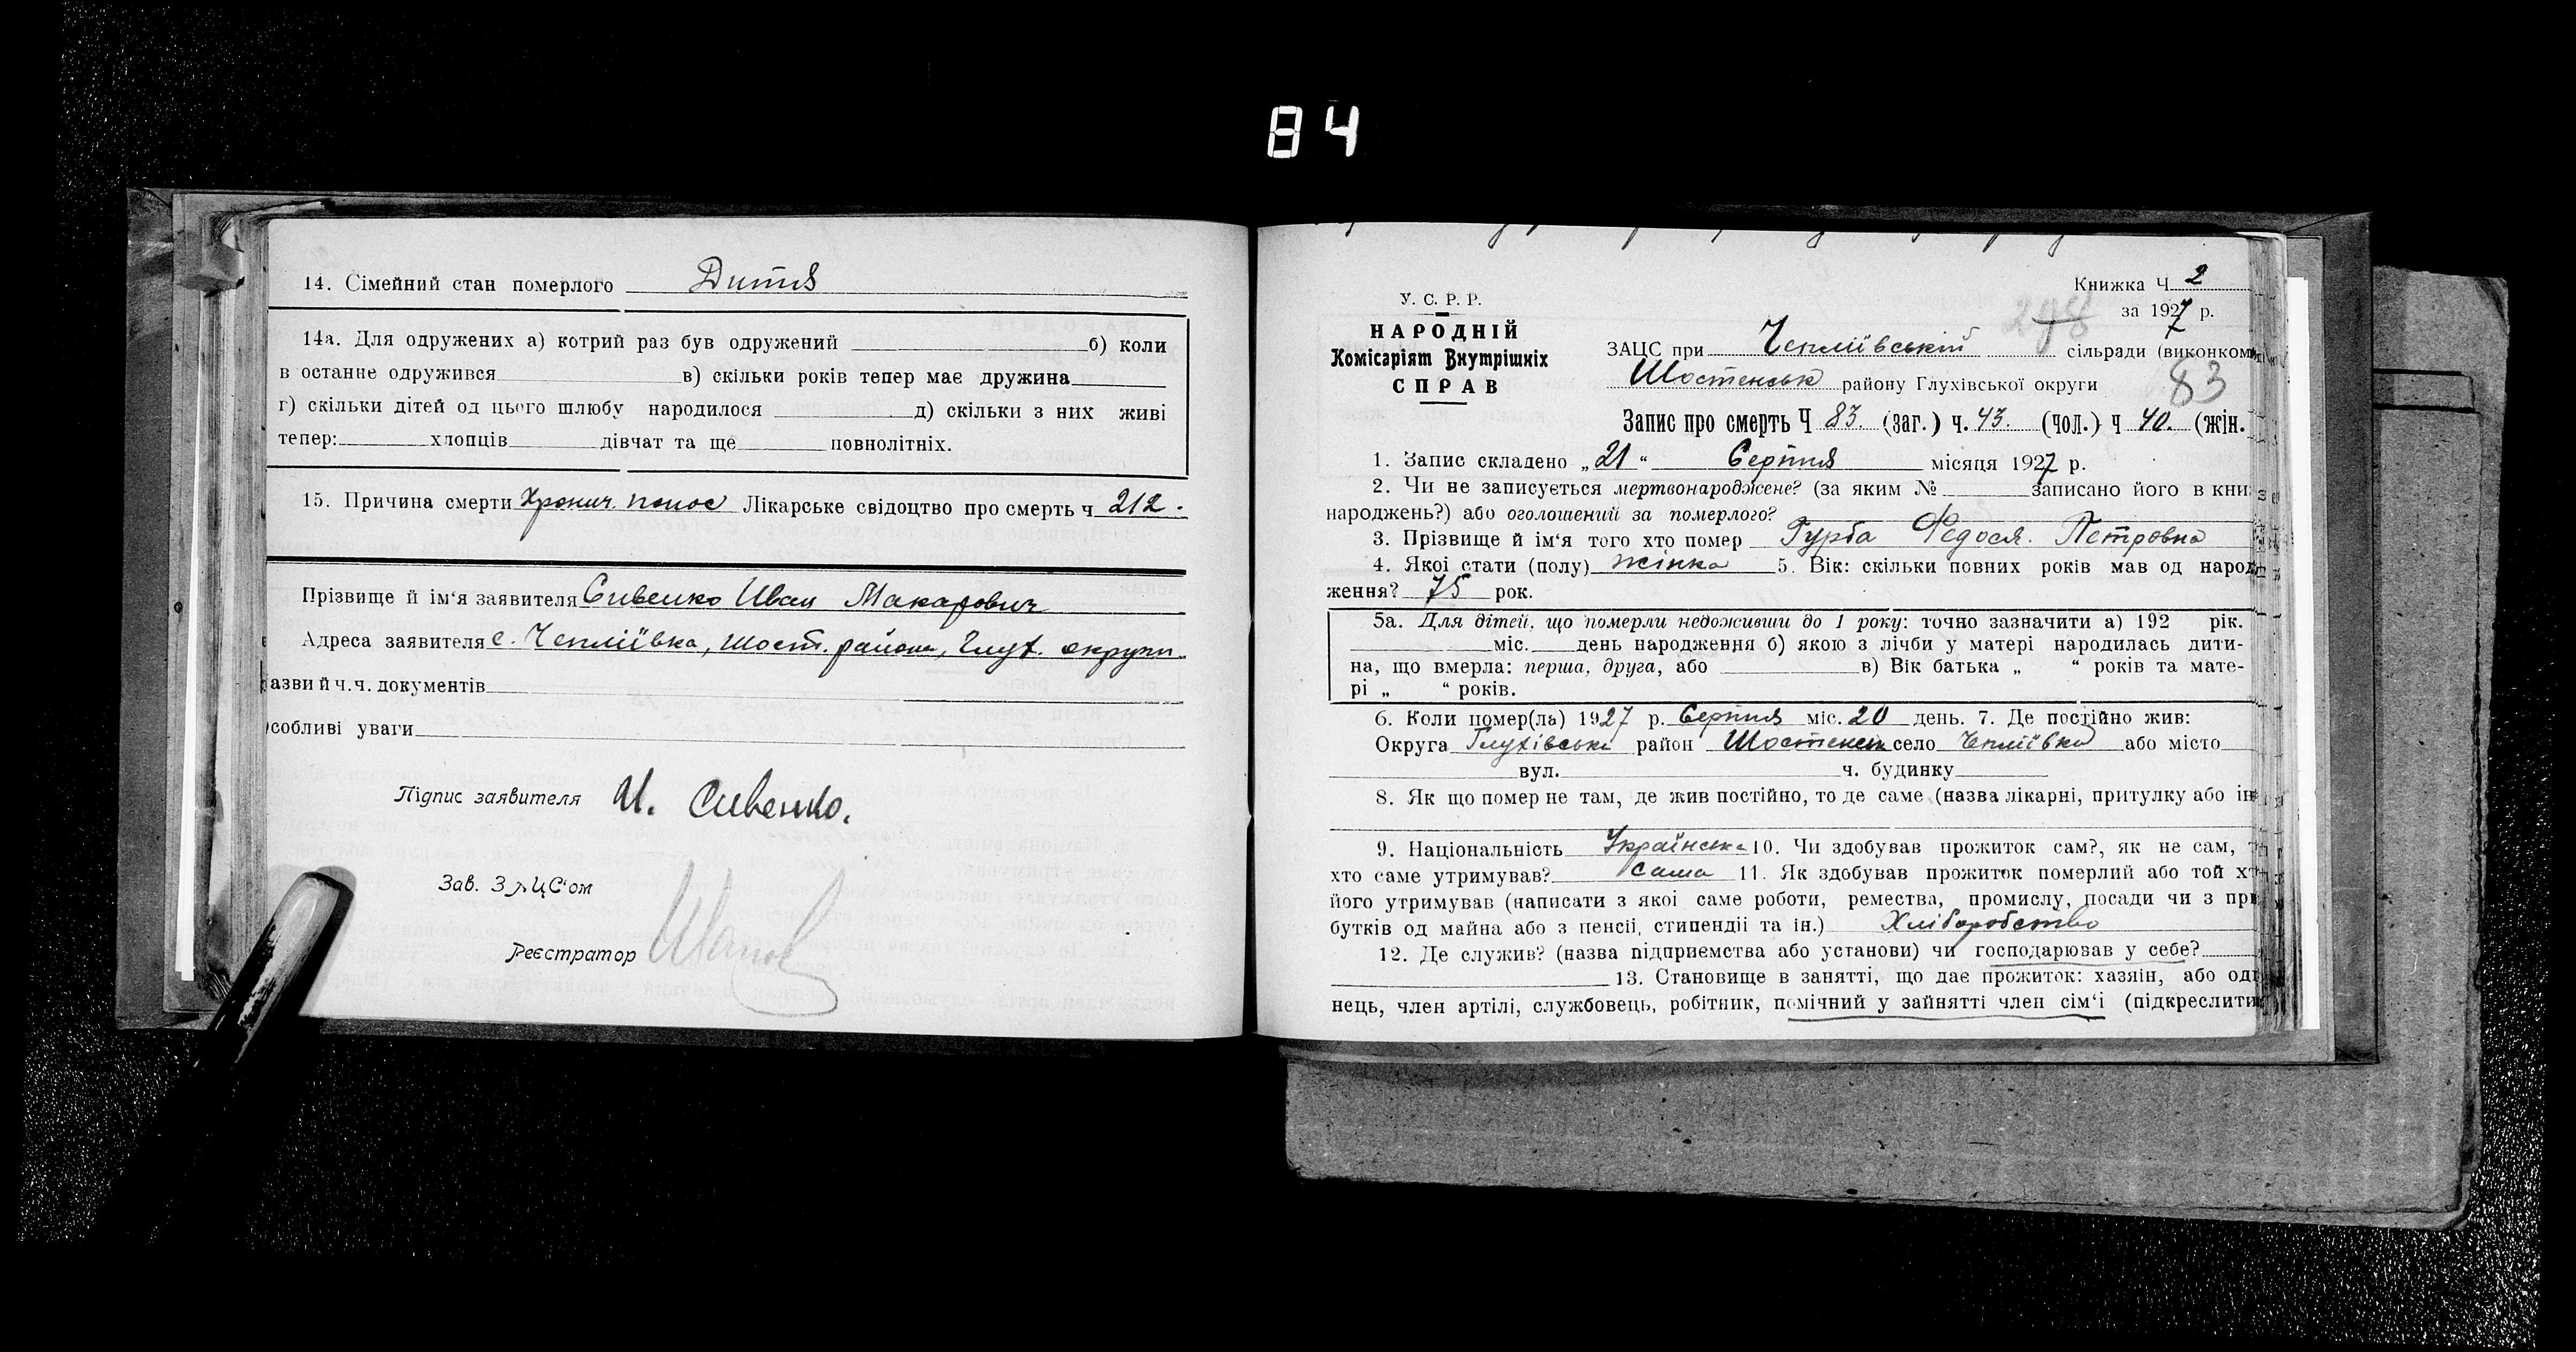 84
14. Сімейний стан померлого Дитя
14а. Для одружених а) котрий раз був одружений б) коли
в останнє одружився в) скільки років тепер має дружина
г) скільки дітей од цього шлюбу народилося д) скільки з них живі
тепер: хлопців дівчат та ще повнолітніх.
15. Причина смерти Хронич. понос Лікарське свідоцтво про смерть ч 212.
Прізвище й ім'я заявителя Сивенко Иван Макарович
Адреса заявителя с. Чепліївка, Шост. района, Глух. округи
азви й ч.ч. документів
собливі уваги
Підпис заявителя И. Сивенко.
Зав. ЗАЦС'ом
Реєстратор
Книжка Ч 2
за 1927 р.
У. С. Р. Р.
НАРОДНІЙ
Комісаріят Внутрішніх
СПРАВ
ЗАЦС при Чепліївській сільради (виконком
Шостенськ району Глухівської округи
83
Запис про смерть Ч 83. (заг.) ч. 43. (чол.) ч 40. (жін.
1. Запис складено „21“ Серпня місяця 1927 р.
2. Чи не записується мертвонароджене? (за яким № записано його в кни
народжень?) або оголошений за померлого?
3. Прізвище й ім'я того хто помер Гурба Федося. Петровна
4. Якої стати (полу) жінка 5. Вік: скільки повних років мав од народ
ження? 75 рок.
5а. Для дітей, що померли недоживши до 1 року: точно зазначити а) 192 рік.
міс. день народження б) якою з лічби у матері народилась дити-
на, що вмерла: перша, друга, або в) Вік батька „ “ років та мате-
рі „ “ років.
6. Коли помер(ла) 1927 р. Серпня міс. 20 день. 7. Де постійно жив:
Округа Глухівська район Шостенськ село Чепліївка або місто
вул. ч. будинку
8. Як що помер не там, де жив постійно, то де саме (назва лікарні, притулку або ін
9. Національність Українська 10. Чи здобував прожиток сам?, як не сам,
хто саме утримував? Сама 11. Як здобував прожиток померлий або той х
його утримував (написати з якої саме роботи, ремества, промислу, посади чи з при
бутків од майна або з пенсії, стипендії та ін.) Хліборобство
12. Де служив? (назва підприємства або установи) чи господарював у себе?
13. Становище в занятті, що дає прожиток: хазяїн, або оди
нець, член артілі, службовець, робітник, помічний у зайнятті член сім'ї (підкреслити